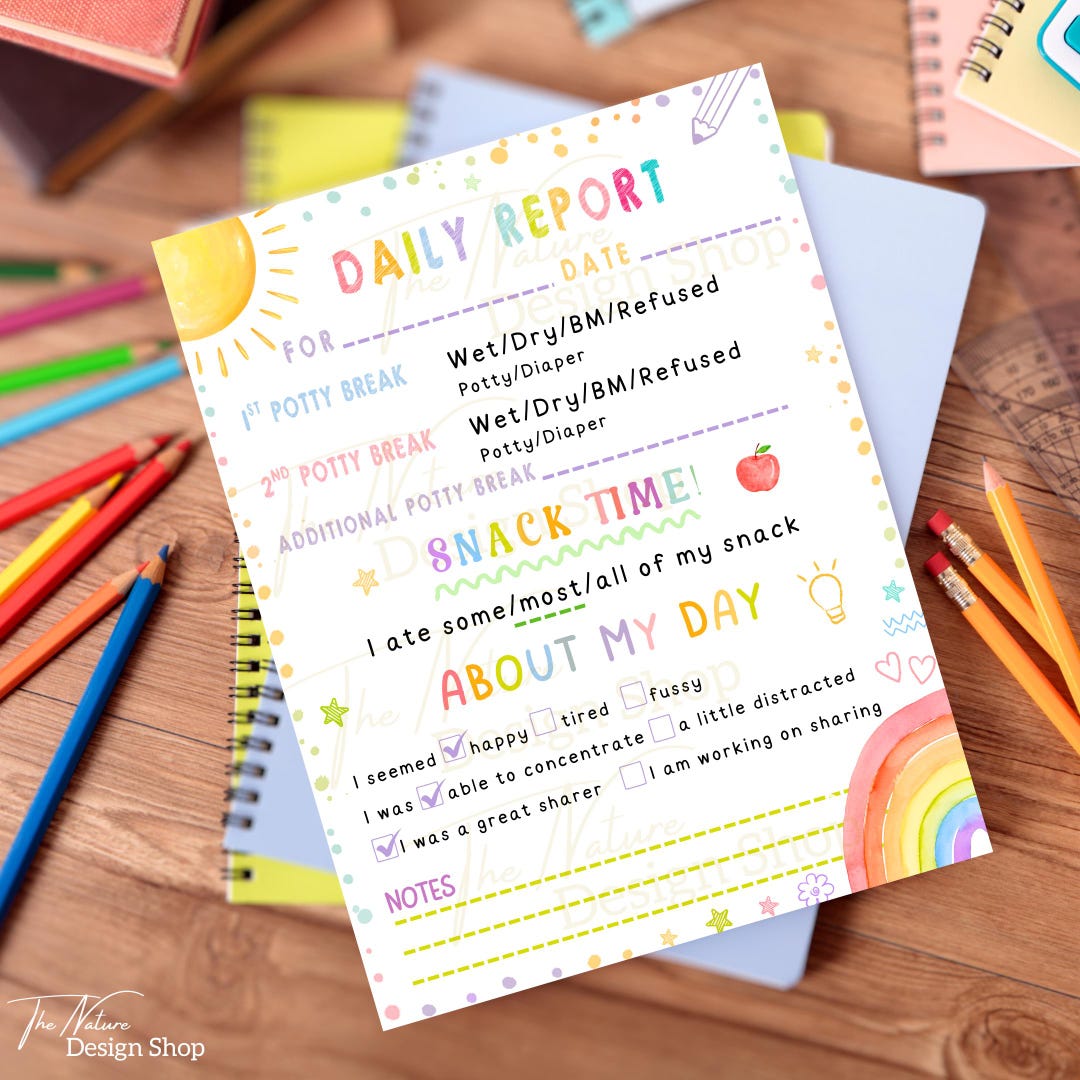 DAILY REPORT
FOR DATE
1ST POTTY BREAK Wet/Dry/BM/Refused
Potty/Diaper
2ND POTTY BREAK Wet/Dry/BM/Refused
Potty/Diaper
ADDITIONAL POTTY BREAK
SNACK TIME!
I ate some/most/all of my snack
ABOUT MY DAY
I seemed happy tired fussy
I was able to concentrate a little distracted
I was a great sharer I am working on sharing
NOTES
The Nature
Design Shop
The Nature
Design Shop
The Nature
Design Shop
The Nature
Design Shop
The Nature
Design Shop